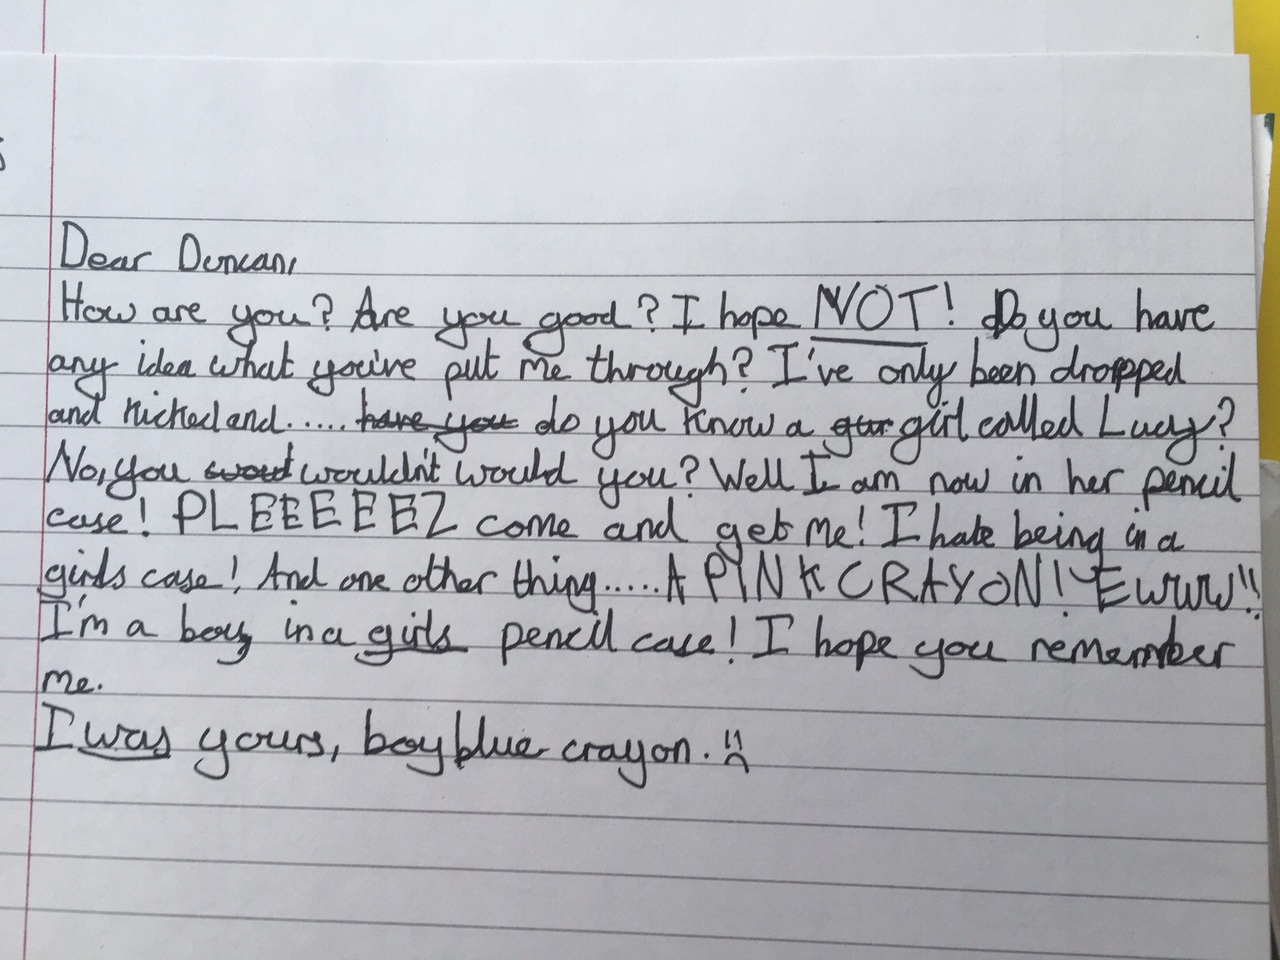 Dear Duncan,
How are you? Are you good? I hope NOT! Do you have
any idea what you've put me through? I've only been dropped
and nicked and..... have you do you know a gur girl called Lucy?
No, you woud wouldn't would you? Well I am now in her pencil
case! PLEEEEEZ come and get me! I hate being in a
girls case! And one other thing..... A PINK CRAYON! Ewww!!
I'm a boy in a girls pencil case! I hope you remember
me.
I was yours, boy blue crayon. :(